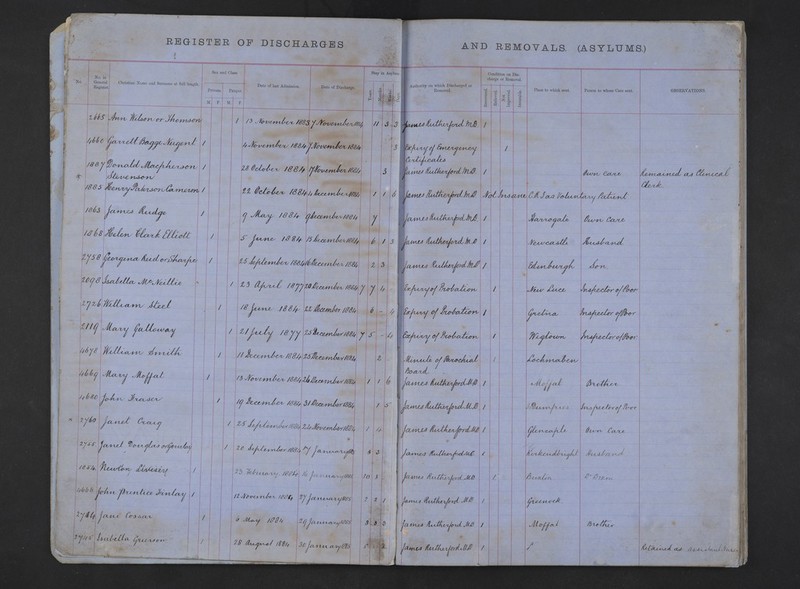 REGISTER OF DISCHARGES AND REMOVALS. (ASYLUMS.)
No. No. in General Register Christian Name and Surname at full length. Sex and Class Private Pauper M F M F Date of last Admission Date of Discharge Authority on which Discharged or Removed Place to which sent. Person to whose Care sent. OBSERVATIONS.
2665 Ann Wilson or Thomson 1 13 November 1883 7 November 1884 11 3 3 James Rutherford M.D. 1
4660 Garrett Bagge Nugent 1 4 November 1884 7 November 1884 3 Expiry of Emergency Certificates 1
1807 Donald Macpherson Stevenson 1 28 October 1884 17 November 1884 3 James Rutherford M.D. 1 Own care Remained as Clinical Clerk
1803 Henry Paterson Cameron 1 22 October 1884 4 December 1884 1 1 6 James Rutherford M.D. Not Insane C.R.I as Voluntary Patient
1063 James Rudge 1 9 May 1884 9 December 1884 7 James Rutherford M.D. 1 Harrogate Own Care
1868 Helen Clark Elliott 1 5 June 1884 13 December 1884 6 1 3 James Rutherford M.D. 1 Newcastle Husband
2758 Georgina Reid or Sharpe 1 25 September 1884 16 December 1884 2 3 James Rutherford M.D. 1 Edinburgh Son
2098 Isabella McNeillie 1 23 April 1877 22 December 1884 7 7 4 Expiry of Probation 1 New Luce Inspector of Poor
2726 William Steel 1 18 June 1884 22 December 1884 6 4 Expiry of Probation 1 Gretna Inspector of Poor
2119 Mary Galloway 1 21 July 1877 25 December 1884 7 5 4 Expiry of Probation 1 Wigtown Inspector of Poor
4678 William Smith 1 11 December 1884 25 December 1884 2 Minute of Parochial Board 1 Lochmaben
4669 Mary Moffat 1 13 November 1884 26 December 1884 1 1 6 James Rutherford M.D. 1 Moffat Brother
4680 John Fraser 1 19 December 1884 31 December 1884 1 5 James Rutherford M.D. 1 Dumfries Inspector of Poor
2760 Janet Craig 1 25 September 1884 24 November 1884 1 4 James Rutherford M.D. 1 Glencaple Own Care
2755 Janet Douglas or Gourlay 1 20 September 1884 7 January 1885 James Rutherford M.D. 1 Kirkcudbright Husband
1054 Newton 1 23 February 1884 January 1885 10 James Rutherford M.D. 1
John Prentice Finlay 1 11 November 1884 27 January 1885 2 2 1 James Rutherford M.D. 1 Greenock
2714 Jane Cossar 1 6 May 1884 29 January 1885 8 3 2 James Rutherford M.D. 1 Moffat Brother
Isabella Grierson 1 28 August 1884 30 January 1885 5 2 James Rutherford M.D. 1 Retained as